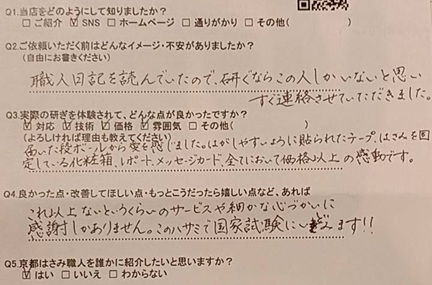 Q1.当店をどのようにして知りましたか?
□ ご紹介 ☑ SNS □ ホームページ □ 通りがかり □ その他( )
Q2.ご依頼いただく前はどんなイメージ・不安がありましたか?
(自由にお書きください)
職人日記を読んでいたので、研ぐならこの人しかいないと思い
すぐ連絡させていただきました。
Q3.実際の研ぎを体験されて、どんな点が良かったですか?
☑ 対応 ☑ 技術 ☑ 価格 ☑ 雰囲気 □ その他( )
(よろしければ理由も教えてください)
届いた段ボールから愛を感じました。はがしやすいように貼られたテープ。はさんを固
定している化粧箱、レポート、メッセージカード、全てにおいて価格以上の感動です。
Q4.良かった点・改善してほしい点・もっとこうだったら嬉しい点など、あれば
これ以上ないというくらいのサービスや細かな心づかいに
感謝しかありません。このハサミで国家試験にいどみます!!
Q5.京都はさみ職人を誰かに紹介したいと思いますか?
☑ はい □ いいえ □ わからない